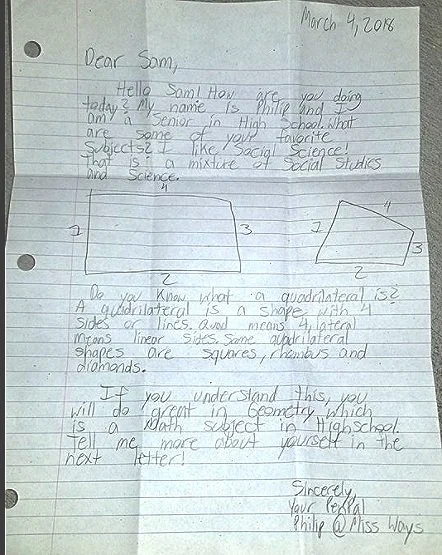 March 4, 2018
Dear Sam,
Hello Sam! How are you doing
today? My name is Philip and I
am a Senior in High School. What
are some of your favorite
Subjects? I like Social Science!
That is a mixture of Social Studies
and Science.
4
1
3
2
4
1
3
2
Do you know what a quadrilateral is?
A quadrilateral is a shape with 4
sides or lines. Quad means 4, lateral
means linear sides. Some quadrilateral
shapes are squares, rhombus and
diamonds.
If you understand this, you
will do great in Geometry which
is a Math subject in Highschool.
Tell me more about yourself in the
next letter!
Sincerely,
Your PenPal
Philip @ Miss Ways